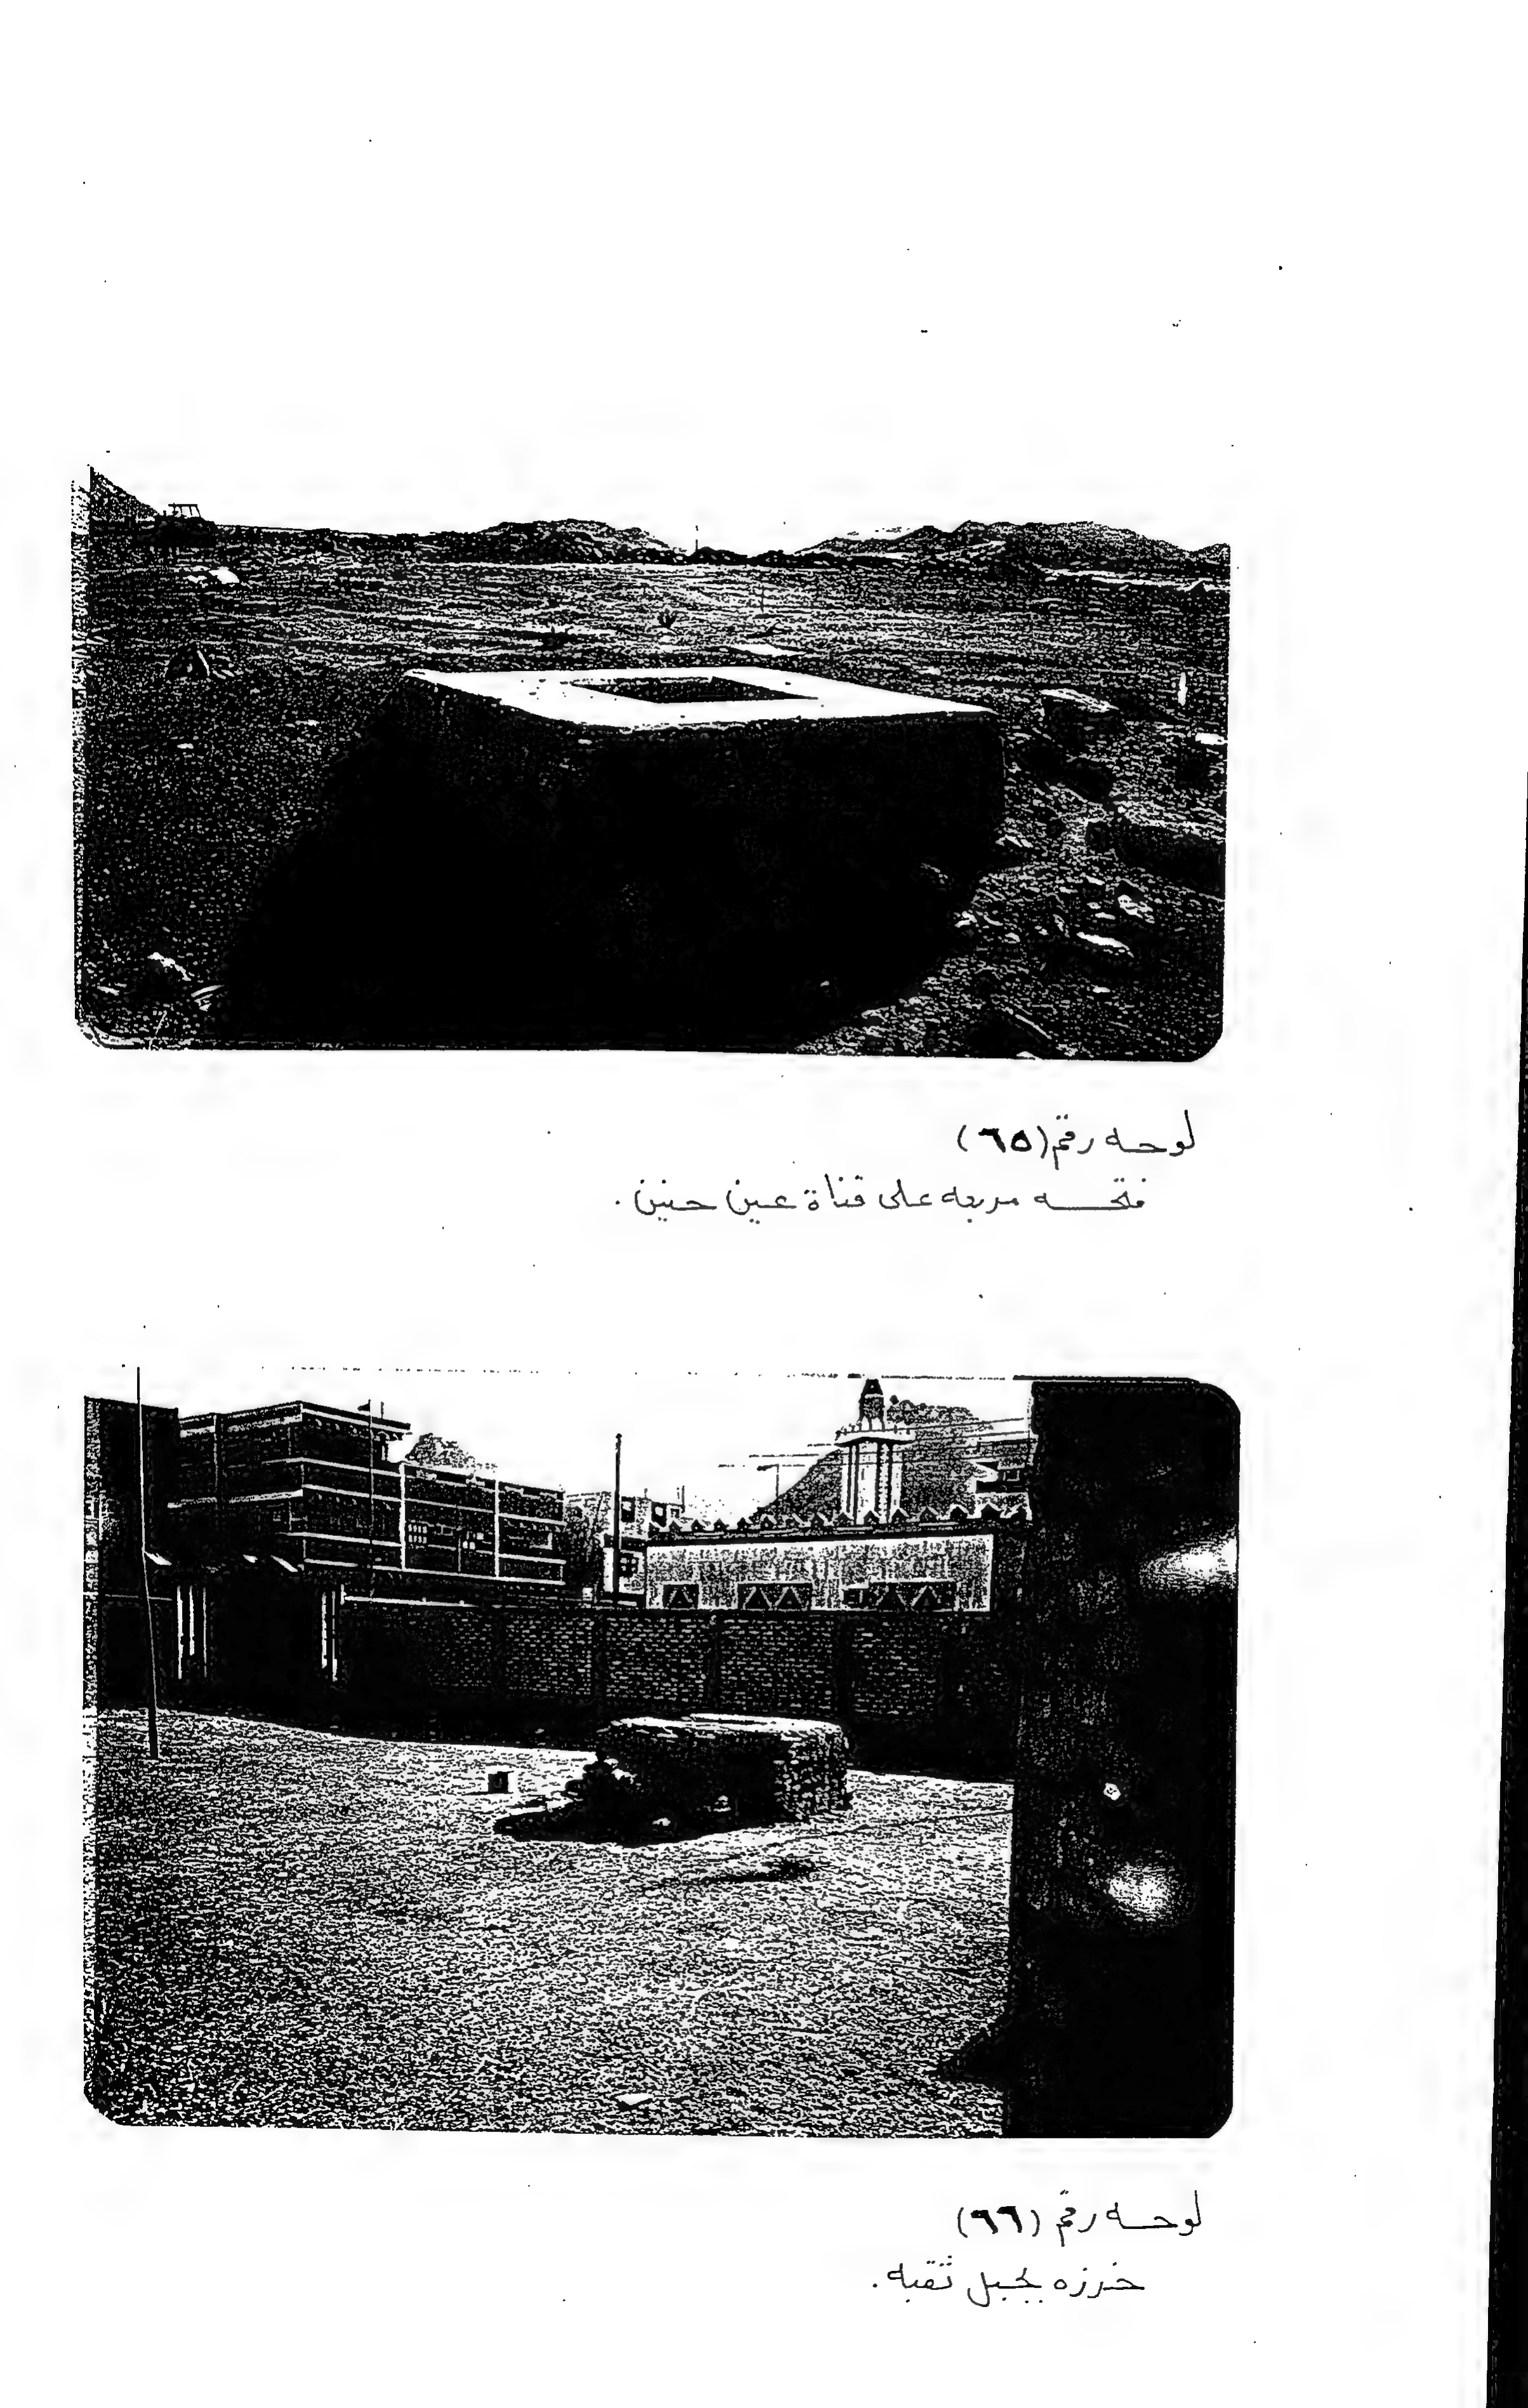 لوحه رقم (٦٥)
فتحه مربعه على قناة عين حنين .
لوحه رقم (٦٦)
خرزه بجبل ثقبه .